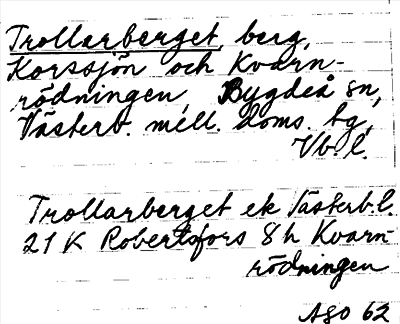 Trollarberget, berg,
Korssjön och Kvarn-
rödningen, Bygdeå sn,
Västerb. mell. doms. tg,
Vb. l.
Trollarberget ek Västerb. l.
21 K Robertsfors 8 h Kvarn-
rödningen
ASO 62